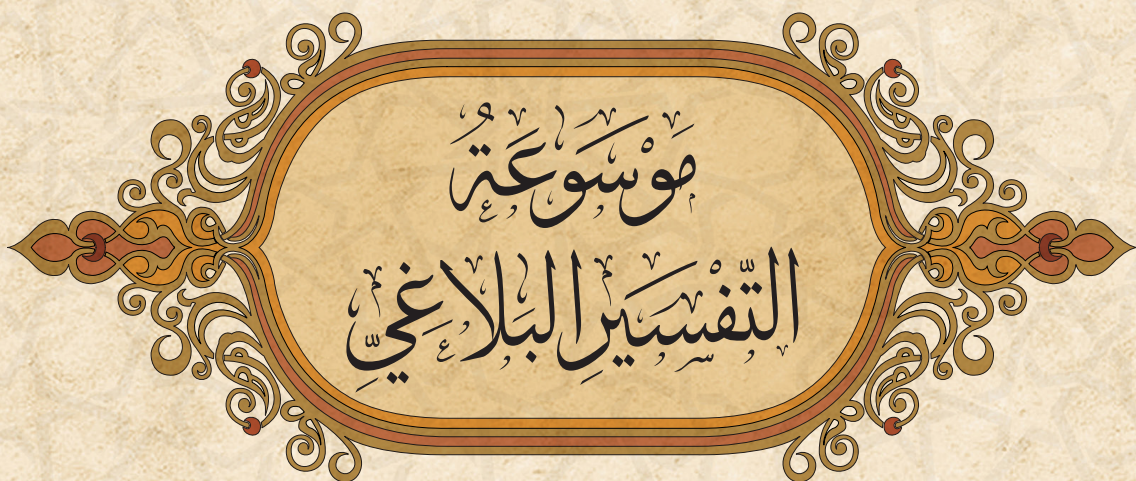 مَوْسَوعَةُ
التَّفْسَيرِ البَلَاغيِّ